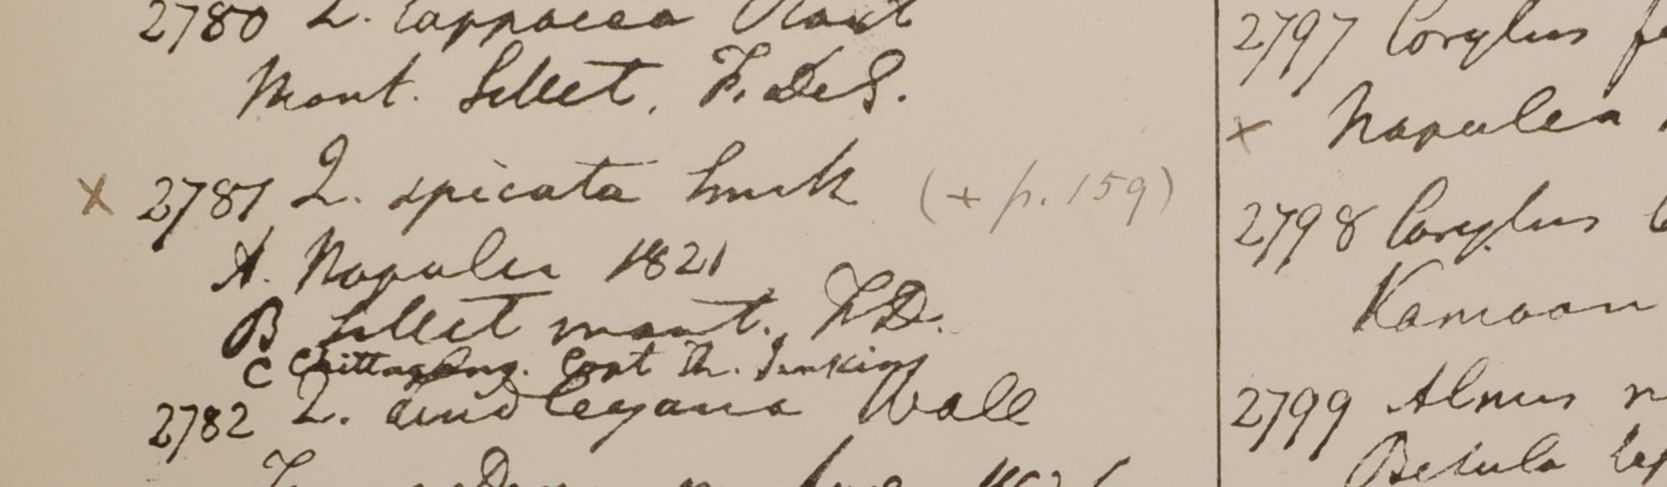 2780 Q. lappacea Roxb
Mont. Sillet. F. De S.
x 2781 Q. spicata Smith (+ p. 159)
A. Napalia 1821
B Sillet mont. F.D.
C Chittagong. Capt Th. Jenkins
2782 Q. Lindleyana Wall
2797 Corylus
x Napalea
2798 Corylus
Kamoon
2799 Alnus
Betula